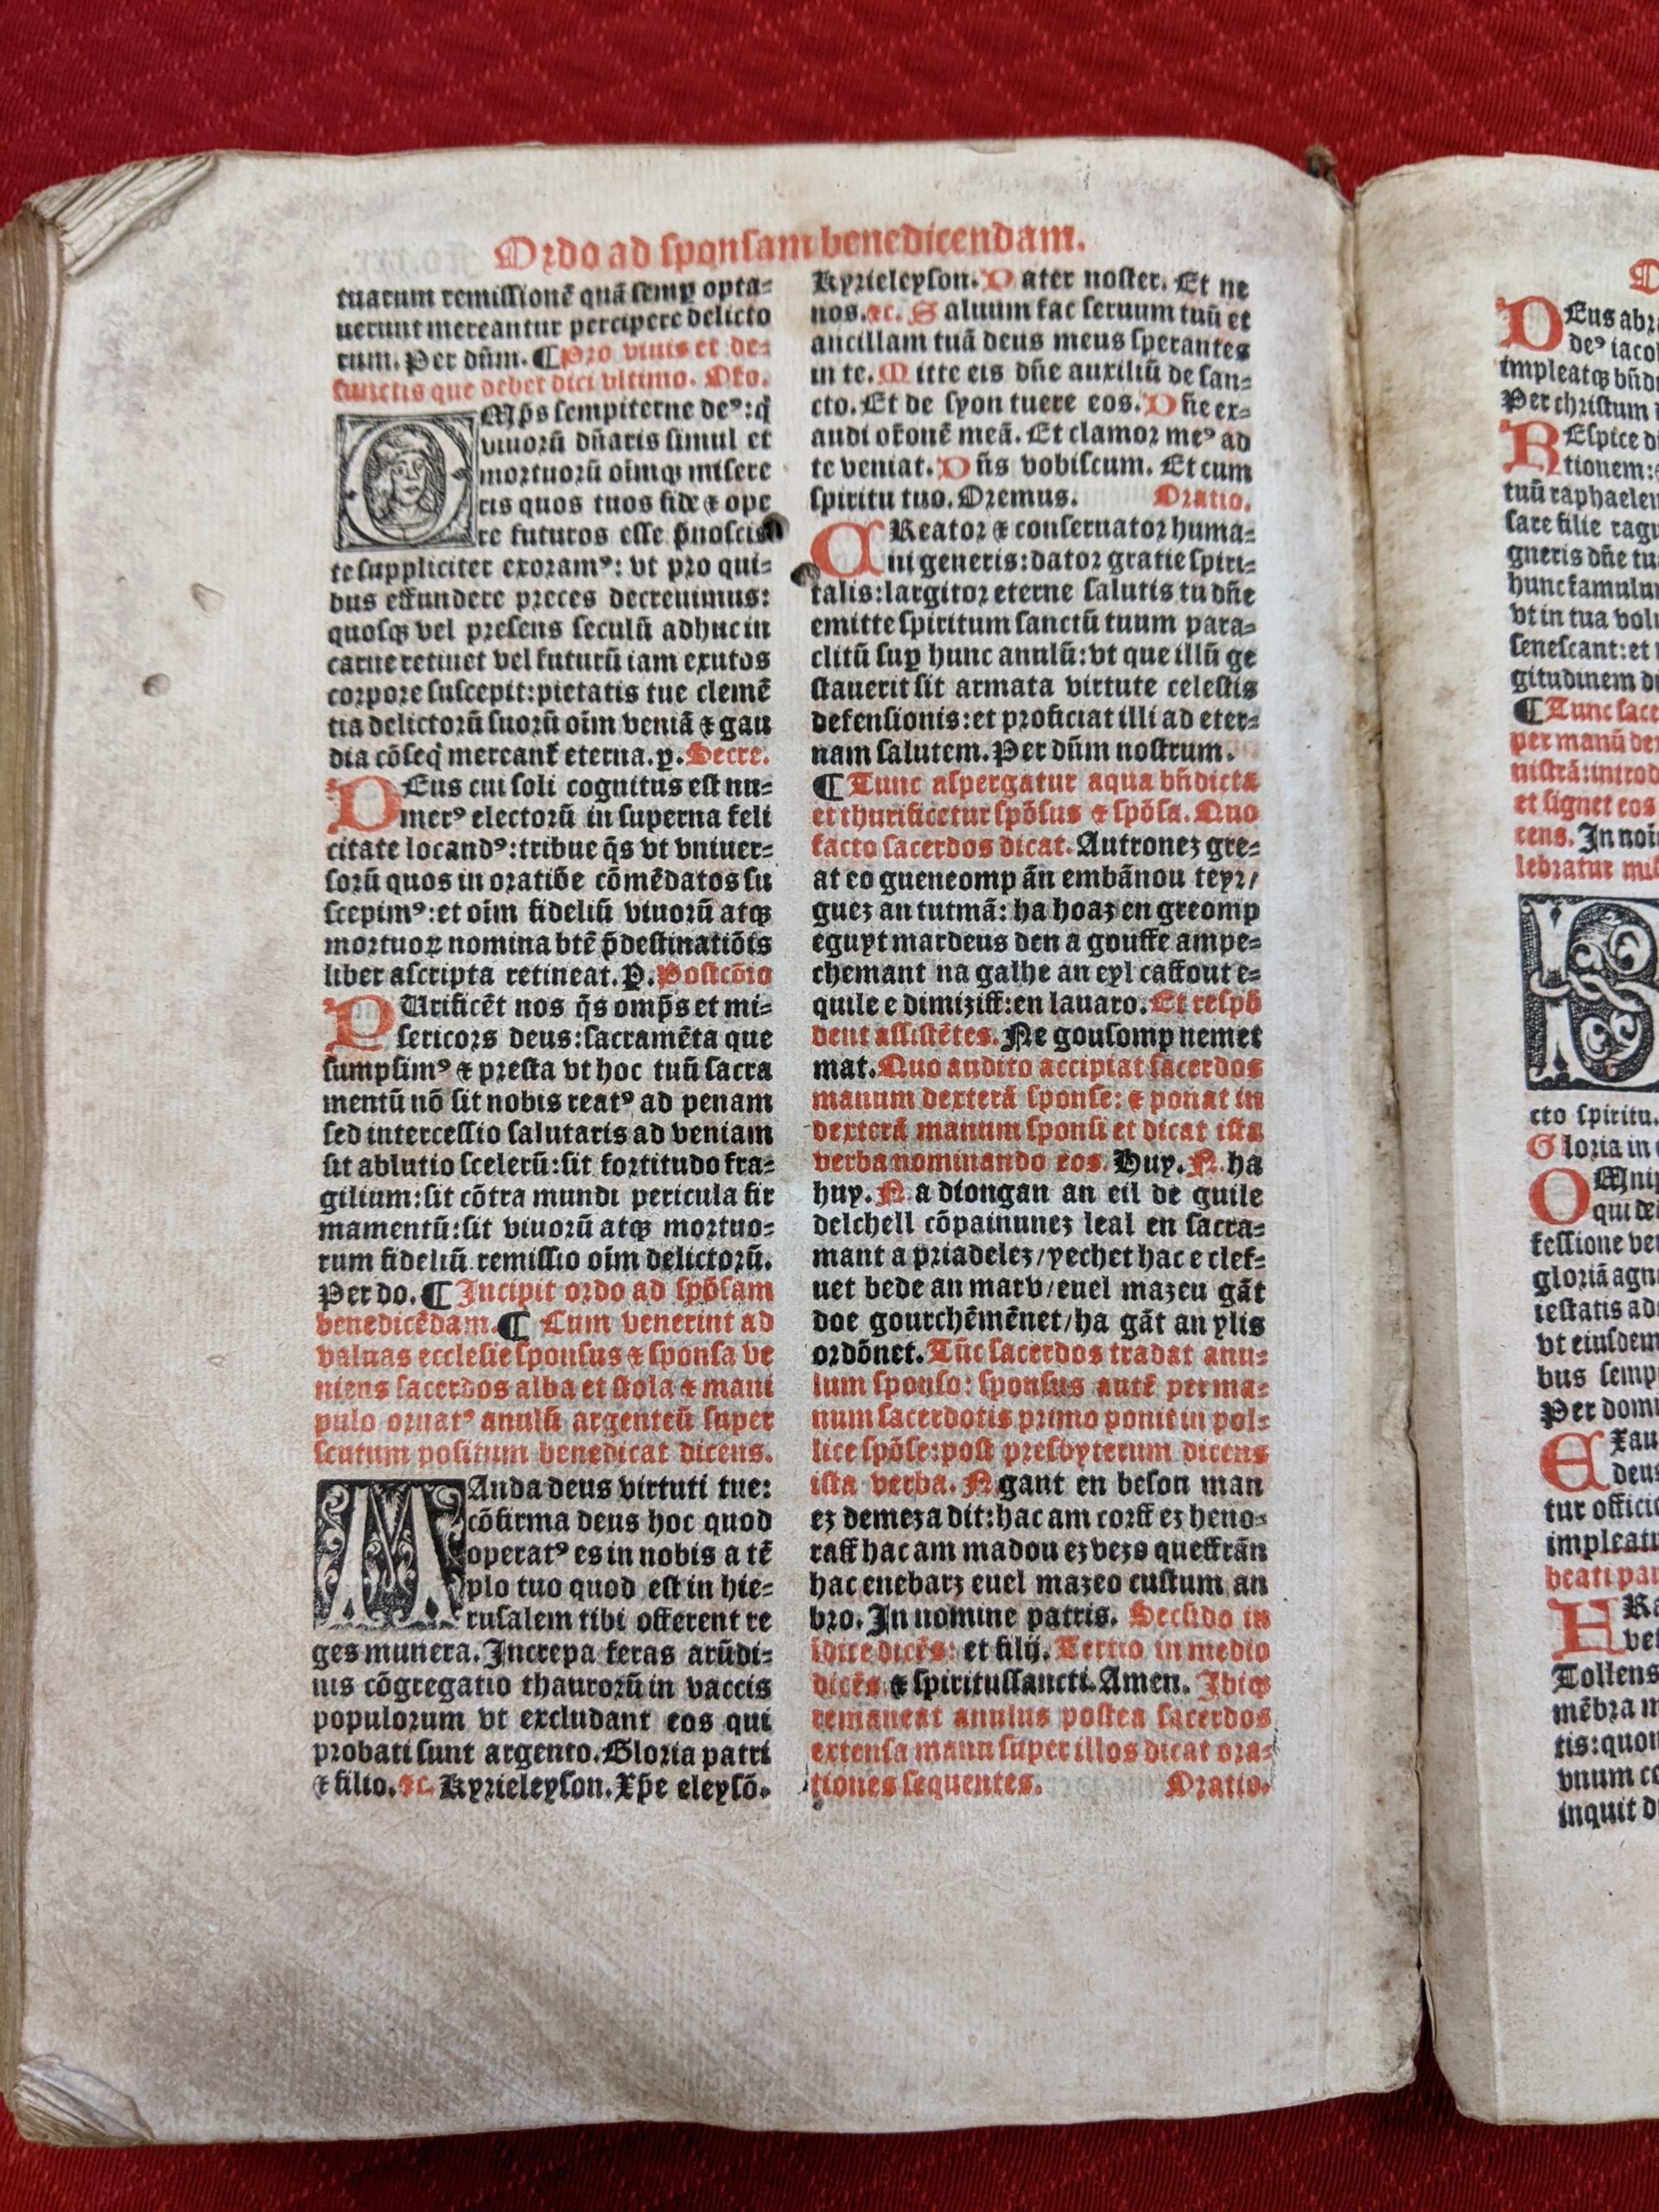 Ordo ad sponsam benedicendam.
tuarum remissionē quā semꝑ opta⸗
uerunt mereantur percipere delicto
rum. Per dūm. ¶ Pro viuis et de⸗
functis que debet dici vltimo. Oro.
OMp̄s sempiterne deꝰ: q̄
viuorū dn̄aris simul et
mortuorū oīmqꝫ misere
ris quos tuos fide ⁊ ope
re futuros esse p̄noscis
te suppliciter exoramꝰ: vt pro qui⸗
bus effundere preces decreuimus:
quosqꝫ vel presens seculū adhuc in
carne retinet vel futurū iam exutos
corpore suscepit: pietatis tue clemē
tia delictorū suorū oīm veniā ⁊ gau
dia cōseq̄ mereant̄ eterna. ꝑ. Secre.
DEus cui soli cognitus est nu⸗
merꝰ electorū in superna feli
citate locandꝰ: tribue q̄s vt vniuer⸗
sorū quos in oratiōe cōmēdatos su
scepimꝰ: et oīm fideliū viuorū atqꝫ
mortuoꝝ nomina btē p̄destinatiōis
liber ascripta retineat. P. Postcōio
PUrificēt nos q̄s omp̄s et mi⸗
sericors deus: sacramēta que
sumpsimꝰ ⁊ presta vt hoc tuū sacra
mentū nō sit nobis reatꝰ ad penam
sed intercessio salutaris ad veniam
sit ablutio scelerū: sit fortitudo fra⸗
gilium: sit cōtra mundi pericula fir
mamentū: sit viuorū atqꝫ mortuo⸗
rum fideliū remissio oīm delictorū.
Per do. ¶ Incipit ordo ad spōsam
benedicēdam. ¶ Cum venerint ad
valuas ecclesie sponsus ⁊ sponsa ve
niens sacerdos alba et stola ⁊ mani
pulo ornatꝰ anulū argenteū super
scutum positum benedicat dicens.
MAnda deus virtuti tue:
cōfirma deus hoc quod
operatꝰ es in nobis a tē
plo tuo quod est in hie⸗
rusalem tibi offerent re
ges munera. Increpa feras arūdi⸗
nis cōgregatio thaurorū in vaccis
populorum vt excludant eos qui
probati sunt argento. Gloria patri
⁊ filio. ⁊c. Kyrieleyson. Xp̄e eleysō.
Kyrieleyson. Pater noster. Et ne
nos. ⁊c. Saluum fac seruum tuū et
ancillam tuā deus meus sperantes
in te. Mitte eis dn̄e auxiliū de san⸗
cto. Et de syon tuere eos. Dn̄e ex⸗
audi or̄onē meā. Et clamor meꝰ ad
te veniat. Dn̄s vobiscum. Et cum
spiritu tuo. Oremus. Oratio.
CReator ⁊ conseruator huma⸗
ni generis: dator gratie spiri⸗
talis: largitor eterne salutis tu dn̄e
emitte spiritum sanctū tuum para⸗
clitū suꝑ hunc anulū: vt que illū ge
stauerit sit armata virtute celestis
defensionis: et proficiat illi ad eter⸗
nam salutem. Per dūm nostrum.
¶ Tunc aspergatur aqua bn̄dicta
et thurificetur spōsus ⁊ spōsa. Quo
facto sacerdos dicat. Autronez gre⸗
at eo gueneomp ān embānou teyr/
guez an tutmā: ha hoaz en greomp
eguyt mar deus den a gouffe ampe⸗
chemant na galhe an eyl caffout e⸗
guile e dimiziff: en lauaro. Et respō
dent assistētes. Ne gousomp nemet
mat. Quo audito accipiat sacerdos
manum dexterā sponse: ⁊ ponat in
dexterā manum sponsi et dicat ista
verba nominando eos. Huy. N. ha
huy. N a diongan an eil de guile
delchell cōpainunez leal en sacra⸗
mant a priadelez/ yechet hac e clef⸗
uet bede an marv/ euel mazeu gāt
doe gourchēmēnet/ ha gāt an ylis
ordōnet. Tūc sacerdos tradat anu⸗
lum sponso: sponsus autē per ma⸗
num sacerdotis primo ponit in pol⸗
lice spōse: post presbyterum dicens
ista verba. N gant en beson man
ez demeza dit: hac am corff ez heno⸗
raff hac am madou ez vezo queffrān
hac enebarz euel mazeo custum an
bro. In nomine patris. Secūdo in
īdice dicēs: et filij. Tertio in medio
dicēs ⁊ spiritussancti. Amen. Ibiqꝫ
remaneat anulus postea sacerdos
extensa manu super illos dicat ora⸗
tiones sequentes. Oratio.
DEus abra
deꝰ iaco
impleatqꝫ bn̄di
Per christum
REspice d
tionem:
tuū raphaelem
sare filie ragu
gneris dn̄e tu
hunc famulum
vt in tua volu
senescant: et
gitudinem di
¶ Tunc sace
per manū de
nistrā: introd
et signet eos
cens. In noī
lebratur mis
B
cto spiritu.
Gloria in
OMnip
qui de
fessione ve
gloriā agn
iestatis ad
vt eiusdem
bus semp
Per domi
EXau
deus
tur officio
impleatu
beati pau
FRa
ve
Tollens
mēbra m
tis: quon
vnum co
inquit d